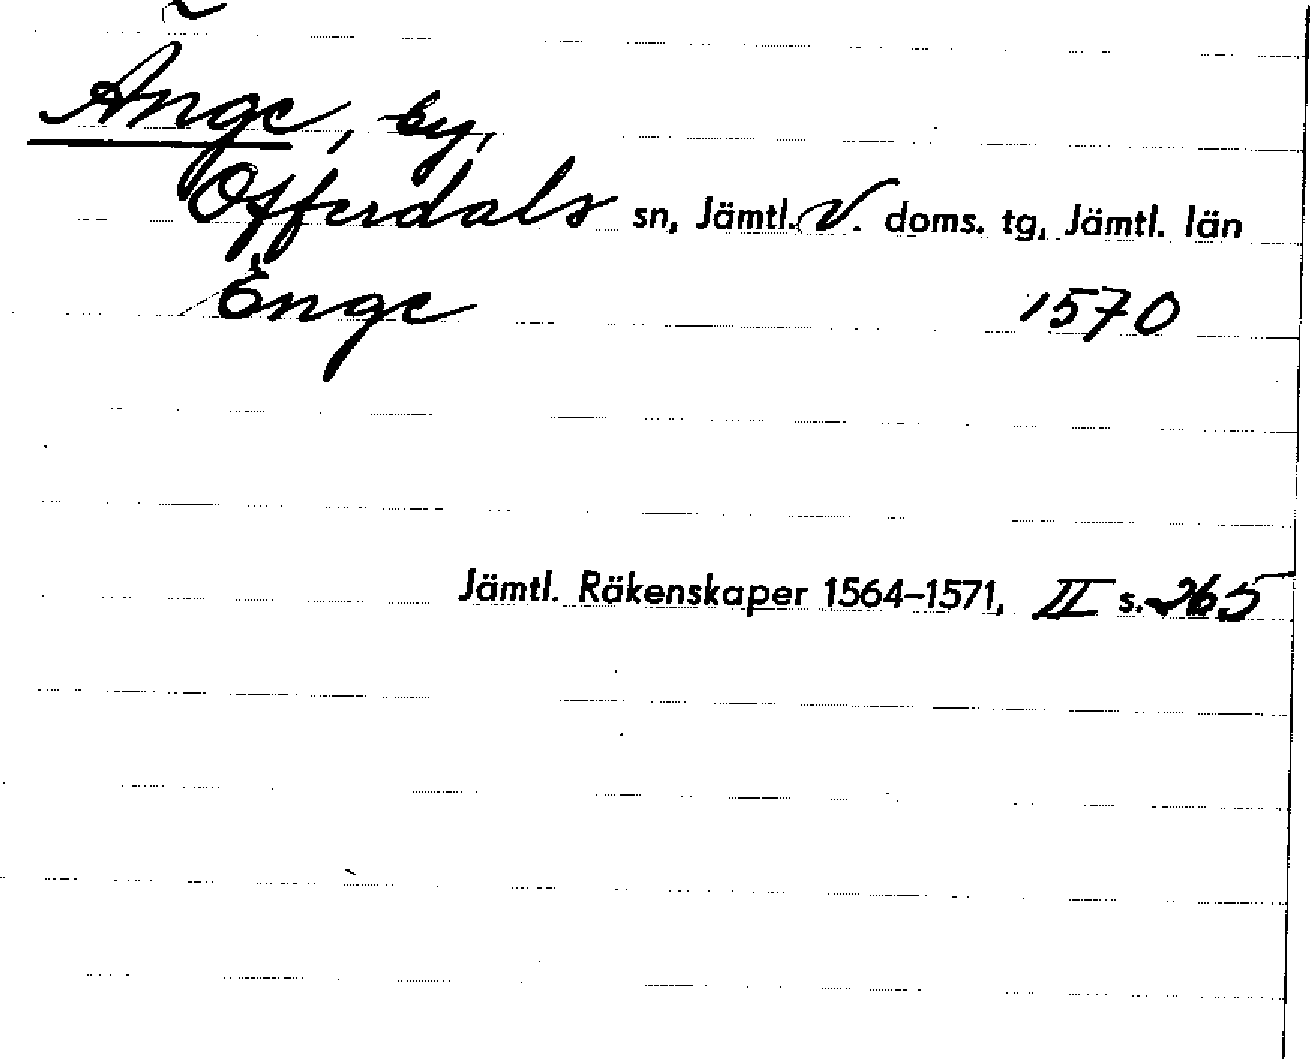 Änge, by,
Offerdals sn, Jämtl. V. doms. tg, Jämtl. län
Enge 1570
Jämtl. Räkenskaper 1564–1571, II s. 265